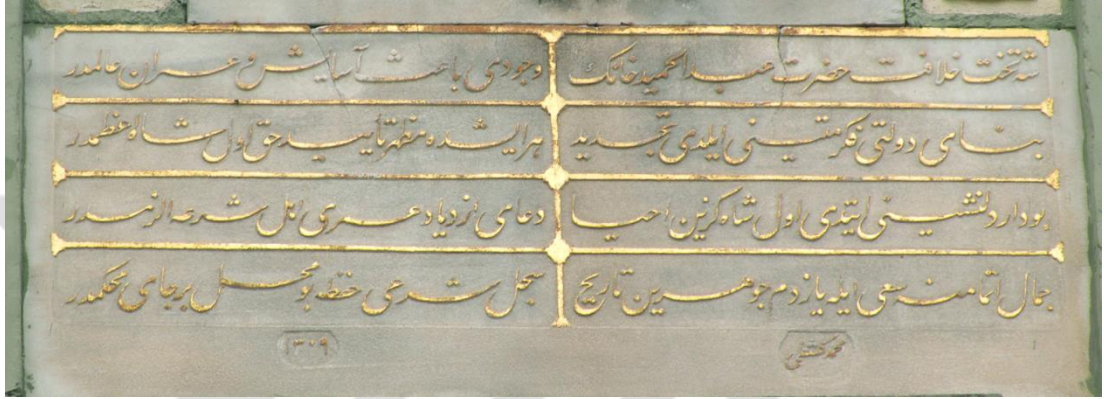 شه تخت خلافت حضرت عبدالحمید خانک وجودی باعث آسایش و عمران عالمدر
بنای دولتی فکر متینی ایلدی تجدید هر ایشده مظهر تأیید حق اول شاه اعظمدر
بو دار دلنشینی ایتدی اول شاه کزین احیا دعای ازدیاد عمری اهل شرعه الزمدر
جمال اتمامنه سعی ایله یازدم جوهرین تاریخ سجل شرعی حفظه بو محل بر جای محکمدر
محمد ١٣٠٩